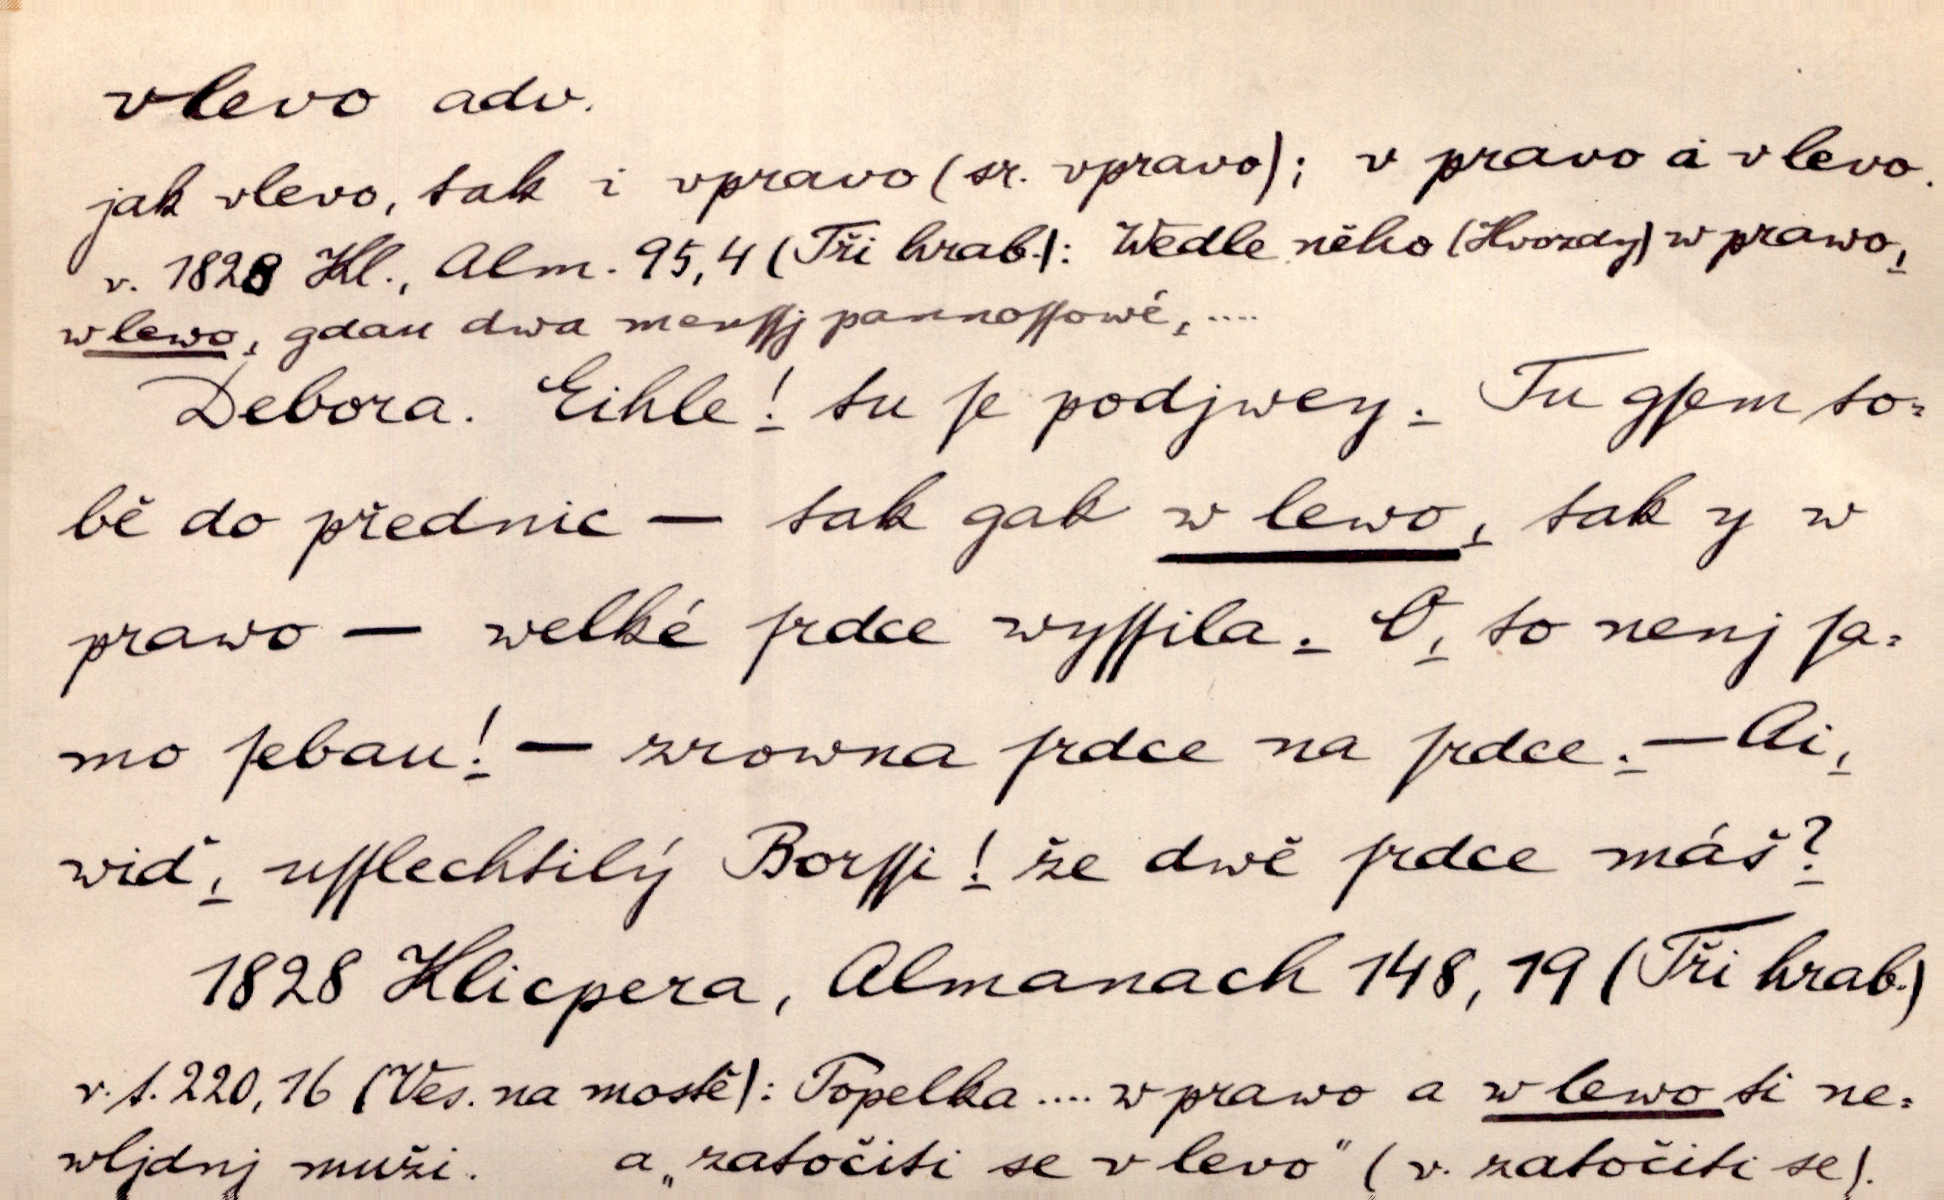 vlevo adv.
jak vlevo, tak i vpravo (sr. vpravo); v pravo a vlevo.
v. 1828 Kl., Alm. 95,4 (Tři hrab.): Wedle něho (Hvozdy) w prawo,
w lewo, gdau dwa menſſj pannoſſowé, ....
Debora. Eihle! tu ſe podjwey. Tu gſem to=
bě do přednic — tak gak w lewo, tak y w
prawo — welké ſrdce wyſſila. O, to nenj ſa=
mo ſebau! — zrowna ſrdce na ſrdce. — Ai,
wiď, uſſlechtilý Borſſi! že dwě ſrdce máš?
1828 Klicpera, Almanach 148, 19 (Tři hrab.)
v. t. 220, 16 (Ves. na mostě): Topelka .... w prawo a w lewo ti ne=
wljdnj muži. a „zatočiti se v levo" (v. zatočiti se).